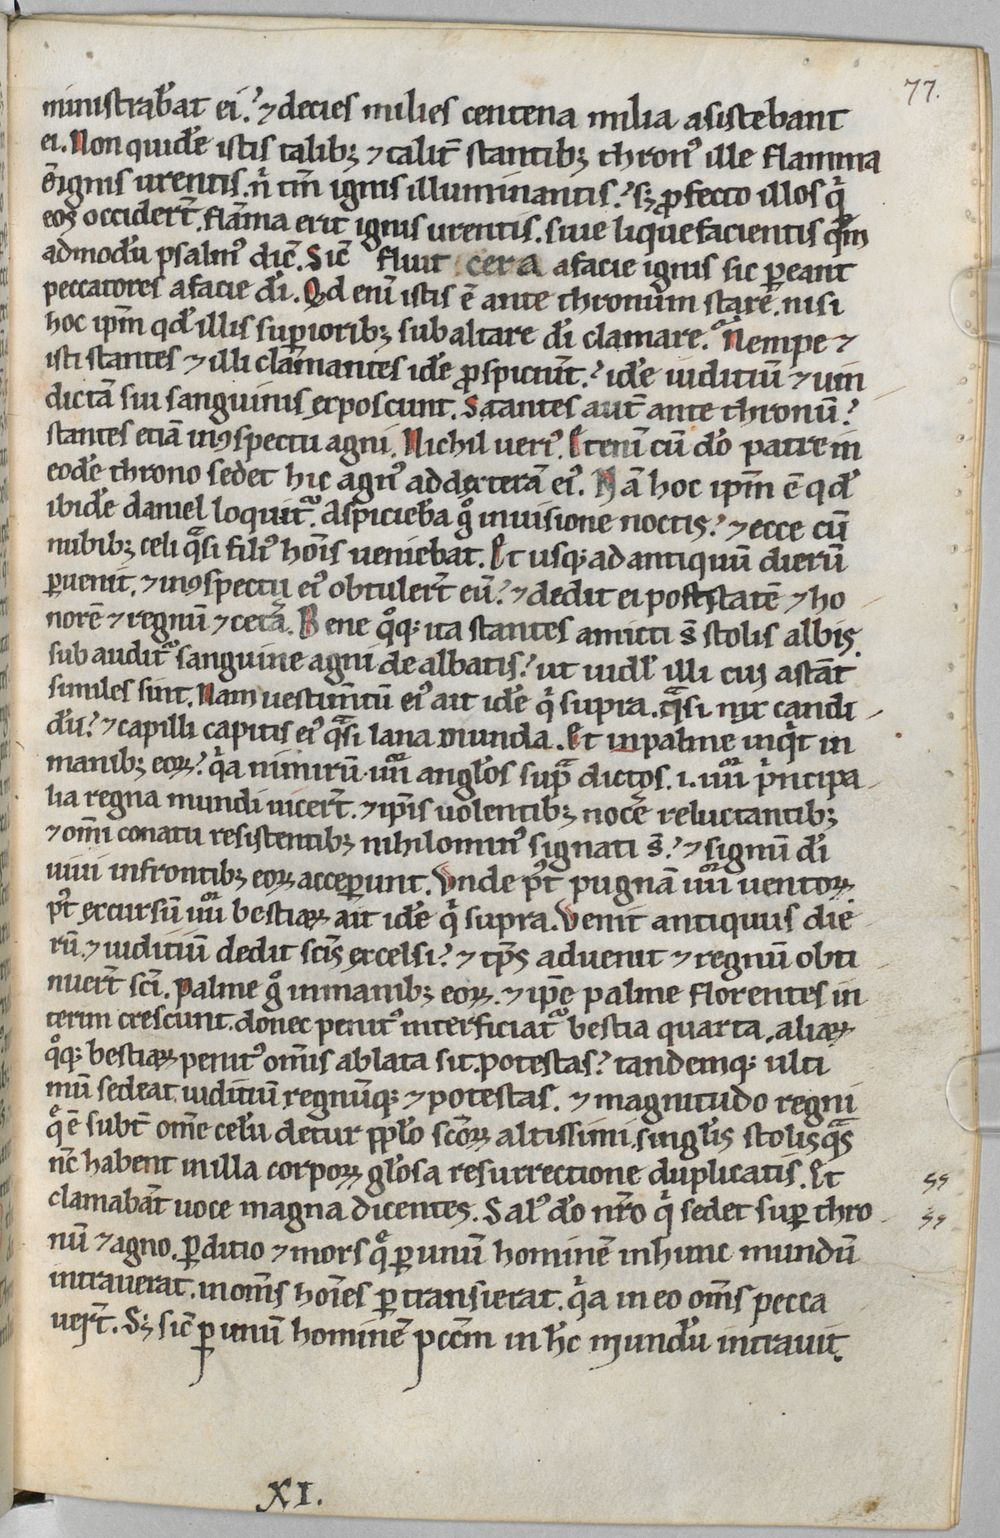 77.
ministrab̄at ei.? ⁊ decies milies centena milia asistebant
ei. Non quidē istis talib; ⁊ talit̄ stantib; thron᷒ ille flamma
ē ignis urentis. n̄ tm̄ ignis illuminantis.? s; ꝓfecto illos q̇
eos occider̄t. flāma erit ignis urentis. siue liquefacientis quē
admodū psalm᷒ dic̄. Sic̄ fluit cera a facie ignis sic ꝑeant
peccatores a facie dī. Qd̄ enī istis ē ante thronum stare. nisi
hoc ip̄m qd̄ illis supīorib; sub altare dī clamare.? Nempe ⁊
isti stantes ⁊ illi clamantes idē ꝓspiciūt.? idē iuditiū ⁊ uin
dictā sui sanguinis exposcunt. Stantes aut̄ ante thronū.?
stantes etiā in ꝯspectu agni. Nichil ueri᷒. Etenī cū dō patre in
eodē throno sedet hic agn᷒ ad dexterā ei᷒. Nā hoc ip̄m ē qd̄
ibidē daniel loquit᷑. Aspiciebā g° in uisione noctis.? ⁊ ecce cū
nubib; celi q̄si fili᷒ hoīs ueniebat. Et usq; ad antiquū dierū
ꝑuenit. ⁊ in ꝯspectu ei᷒ obtuler̄t eū.? ⁊ dedit ei potestatē ⁊ ho
norē ⁊ regnū ⁊ cetā. Bene q°q; ita stantes amicti s̄ stolis albis.
subaudit᷑ sanguine agni dealbatis.? ut uidl̄ illi cui astāt
similes sint. Nam uestimtū ei᷒ ait idē q̇ supra. q̄si nix candi
dū.? ⁊ capilli capitis ei᷒ q̄si lana munda. Et palme inq̇t in
manib; eoꝝ.? q̇a nimirū .iiiior. angl̄os sup̄ dictos .i. iiiior ṗncipa
lia regna mundi uicer̄t. ⁊ ip̄is uolentib; nocē reluctantib;
⁊ om̄i conatu resistentib; nihilomin᷒ signati s̄.? ⁊ signū dī
uiui in frontib; eoꝝ acceꝑunt. Vnde p᷒t pugnā iiiior uentoꝝ.
p᷒t excursū iiiior bestiaꝝ ait idē q̇ supra. Venit antiquus die
rū. ⁊ iuditiū dedit sc̄is excelsi.? ⁊ tp̄s aduenit ⁊ regnū obti
nuer̄t sc̄i. Palme g° in manib; eoꝝ. ⁊ ip̄e palme florentes in
terim crescunt. donec penit᷒ interficiat᷑ bestia quarta. aliaꝝ
q°q; bestiaꝝ penit᷒ om̄is ablata sit potestas.? tandemq; ulti
mū sedeat iuditiū regnūq; ⁊ potestas. ⁊ magnitudo regni
q̄ ē subt̄ om̄e celū detur ppl̄o sc̄oꝝ altissimi. singl̄is stolis q̄s
nc̄ habent in illa corpoꝝ gl̄osa resurrectione duplicatis. Et
clamabāt uoce magna dicentes. Sal᷒ dō nr̄o q̇ sedet suꝑ thro
nū ⁊ agno. ꝑditio ⁊ mors q̄ ꝑ unum hominē in hunc mundū
intrauerat. in om̄s hoīes ꝑtransierat. q̇a in eo om̄s pecca
uer̄t. S; sic̄ ꝑ unū hominē pcc̄m in hc̄ mundū intrauit.
XI.